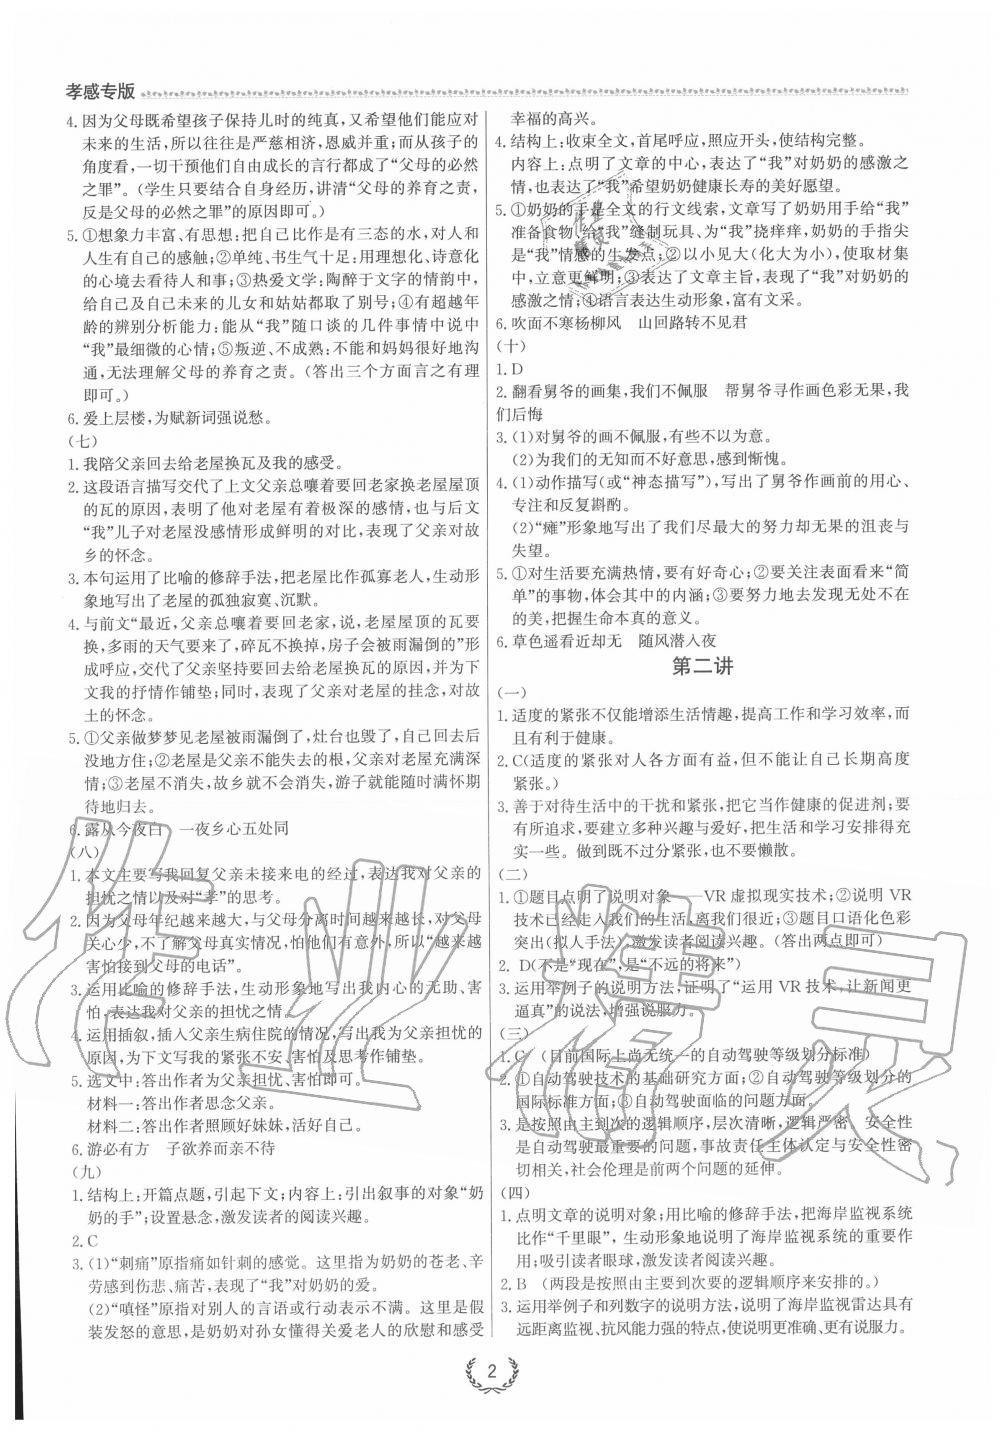 孝感专版
4. 因为父母既希望孩子保持儿时的纯真,又希望他们能应对
未来的生活,所以往往是严慈相济,恩威并重;而从孩子的
角度看,一切干预他们自由成长的言行都成了“父母的必然
之罪”。(学生只要结合自身经历,讲清“父母的养育之责,
反是父母的必然之罪”的原因即可。)
5. ①想象力丰富、有思想:把自己比作是有三态的水,对人和
人生有自己的感触;②单纯、书生气十足:用理想化、诗意化
的心境去看待人和事;③热爱文学:陶醉于文字的情韵中,
给自己及自己未来的儿女和姑姑都取了别号;④有超越年
龄的辨别分析能力:能从“我”随口谈的几件事情中说中
“我”最细微的心情;⑤叛逆、不成熟:不能和妈妈很好地沟
通,无法理解父母的养育之责。(答出三个方面言之有理
即可。)
6. 爱上层楼,为赋新词强说愁。
(七)
1. 我陪父亲回去给老屋换瓦及我的感受。
2. 这段语言描写交代了上文父亲总嚷着要回老家换老屋屋顶
的瓦的原因,表明了他对老屋有着极深的感情,也与后文
“我”儿子对老屋没感情形成鲜明的对比,表现了父亲对故
乡的怀念。
3. 本句运用了比喻的修辞手法,把老屋比作孤寡老人,生动形
象地写出了老屋的孤独寂寞、沉默。
4. 与前文“最近,父亲总嚷着要回老家,说,老屋屋顶的瓦要
换,多雨的天气要来了,碎瓦不换掉,房子会被雨漏倒的”形
成呼应,交代了父亲坚持要回老屋换瓦的原因,并为下
文我的抒情作铺垫;同时,表现了父亲对老屋的挂念,对故
土的怀念。
5. ①父亲做梦梦见老屋被雨漏倒了,灶台也毁了,自己回去后
没地方住;②老屋是父亲不能失去的根,父亲对老屋充满深
情;③老屋不消失,故乡就不会消失,游子就能随时满怀期
待地归去。
6. 露从今夜白 一夜乡心五处同
(八)
1. 本文主要写我回复父亲未接来电的经过,表达我对父亲的
担忧之情以及对“孝”的思考。
2. 因为父母年纪越来越大,与父母分离时间越来越长,对父母
关心少,不了解父母真实情况,怕他们有意外,所以“越来越
害怕接到父母的电话”。
3. 运用比喻的修辞手法,生动形象地写出我内心的无助、害
怕,表达我对父亲的担忧之情。
4. 运用插叙,插入父亲生病住院的情况,写出我为父亲担忧的
原因,为下文写我的紧张不安、害怕及思考作铺垫。
5. 选文中:答出作者为父亲担忧、害怕即可。
材料一:答出作者思念父亲。
材料二:答出作者照顾好妹妹,活好自己。
6. 游必有方 子欲养而亲不待
(九)
1. 结构上:开篇点题,引起下文;内容上:引出叙事的对象“奶
奶的手”;设置悬念,激发读者的阅读兴趣。
2. C
3. (1)“刺痛”原指痛如针刺的感觉。这里指为奶奶的苍老、辛
劳感到伤悲、痛苦,表现了“我”对奶奶的爱。
(2)“嗔怪”原指对别人的言语或行动表示不满。这里是假
装发怒的意思,是奶奶对孙女懂得关爱老人的欣慰和感受
幸福的高兴。
4. 结构上:收束全文,首尾呼应,照应开头,使结构完整。
内容上:点明了文章的中心,表达了“我”对奶奶的感激之
情,也表达了“我”希望奶奶健康长寿的美好愿望。
5. ①奶奶的手是全文的行文线索,文章写了奶奶用手给“我”
准备食物,给“我”缝制玩具、为“我”挠痒痒,奶奶的手指尖
是“我”情感的生发点;②以小见大(化大为小),使取材集
中,立意更鲜明;③表达了文章主旨,表现了“我”对奶奶的
感激之情;④语言表达生动形象,富有文采。
6. 吹面不寒杨柳风 山回路转不见君
(十)
1. D
2. 翻看舅爷的画集,我们不佩服 帮舅爷寻作画色彩无果,我
们后悔
3. (1)对舅爷的画不佩服,有些不以为意。
(2)为我们的无知而不好意思,感到惭愧。
4. (1)动作描写(或“神态描写”),写出了舅爷作画前的用心、
专注和反复斟酌。
(2)“瘫”形象地写出了我们尽最大的努力却无果的沮丧与
失望。
5. ①对生活要充满热情,要有好奇心;②要关注表面看来“简
单”的事物,体会其中的内涵;③要努力地去发现无处不在
的美,把握生命本真的意义。
6. 草色遥看近却无 随风潜入夜
第二讲
(一)
1. 适度的紧张不仅能增添生活情趣,提高工作和学习效率,而
且有利于健康。
2. C(适度的紧张对人各方面有益,但不能让自己长期高度
紧张。)
3. 善于对待生活中的干扰和紧张,把它当作健康的促进剂;要
有所追求,要建立多种兴趣与爱好,把生活和学习安排得充
实一些。做到既不过分紧张,也不要懒散。
(二)
1. ①题目点明了说明对象——VR虚拟现实技术;②说明VR
技术已经走入我们的生活,离我们很近;③题目口语化色彩
突出(拟人手法),激发读者阅读兴趣。(答出两点即可)
2. D(不是“现在”,是“不远的将来”)
3. 运用举例子的说明方法,证明了“运用VR技术,让新闻更
逼真”的说法,增强说服力。
(三)
1. C (目前国际上尚无统一的自动驾驶等级划分标准)
2. ①自动驾驶技术的基础研究方面;②自动驾驶等级划分的
国际标准方面;③自动驾驶面临的问题方面。
3. 是按照由主到次的逻辑顺序,层次清晰,逻辑严密 安全性
是自动驾驶最重要的问题,事故责任主体认定与安全性密
切相关,社会伦理是前两个问题的延伸。
(四)
1. 点明文章的说明对象;用比喻的修辞手法,把海岸监视系统
比作“千里眼”,生动形象地说明了海岸监视系统的重要作
用;吸引读者眼球,激发读者阅读兴趣。
2. B (两段是按照由主要到次要的逻辑顺序来安排的。)
3. 运用举例子和列数字的说明方法,说明了海岸监视雷达具有
远距离监视、抗风能力强的特点,使说明更准确、更有说服力。
2
作业精灵